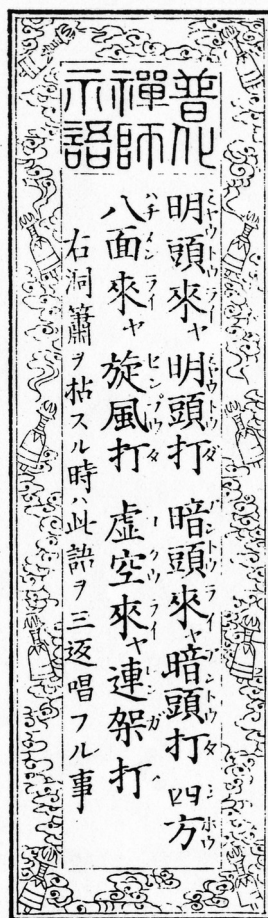 普化
禪師
示語
明頭來ヤ明頭打 暗頭來ャ暗頭打 四方
八面來ヤ旋風打 虚空來ャ連架打
右洞簫ヲ拈スル時ハ此語ヲ三返唱フル事